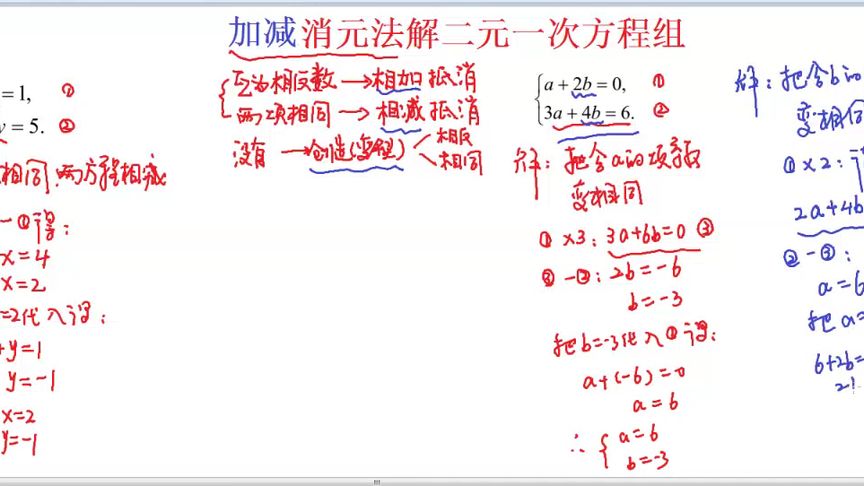 加减消元法解二元一次方程组
=1, ①
y=5. ②
相同,两方程相减
-①得:
x=4
x=2
=2代入得:
+y=1
y=-1
x=2
y=-1
互为相反数→相加抵消
两项相同→相减抵消
没有→创造(变型)
相反
相同
a+2b=0, ①
3a+4b=6. ②
解:把含a的项系数
变相同
①×3:3a+6b=0 ③
③-②:2b=-6
b=-3
把b=-3代入①得:
a+(-6)=0
a=6
∴{a=6
b=-3
解:把含b的
变相同
①×2:
2a+4b
②-③:
a=6
把a=
6+2b=